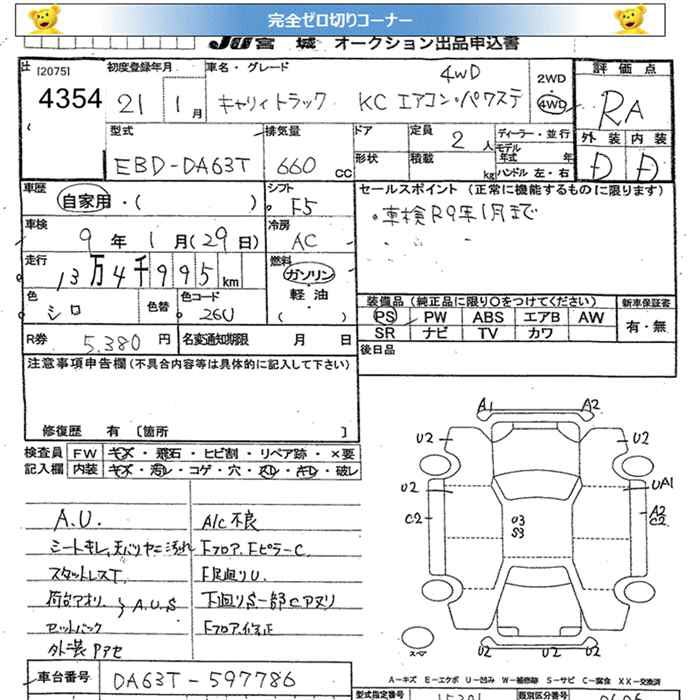 完全ゼロ切りコーナー
Ju宮城 オークション出品申込書
[20751 初度登録年月 車名・グレード 4WD 2WD 評価点
4354 21 1月 キャリィトラック KC エアコン・パワステ 4WD RA
型式 排気量 ドア 定員 2人 ディーラー・並行 外装 内装
EBD-DA63T 660 CC 形状 積載 kg モデル年式 年 D D
ハンドル 左・右
車歴 自家用・( ) シフト F5 セールスポイント (正常に機能するものに限ります)
車検 9年 1月(29日) 冷房 AC ・車検R9年1月まで
走行 13万4千995km 燃料 ガソリン・軽油・( )
色 シロ 色替 色コード 26U 装備品(純正品に限り○をつけてください) 新車保証書
PS PW ABS エアB AW 有・無
SR ナビ TV カワ
R券 5,380円 名変通知期限 月 日 後日品
注意事項申告欄(不具合内容等は具体的に記入して下さい)
修復歴 有 [箇所 ]
検査員 FW キズ・飛石・ヒビ割・リペア跡・×要
記入欄 内装 キズ・汚レ・コゲ・穴・スレ・キレ・破レ
A.U. A/C不良
シートキレ、天バリヤニ汚れ Fフロア、FピラーC.
スタットレスT. F足廻りU.
荷台アオリ、 A.U.S 下廻りS一部Cアヌリ
セットバック Fフロア、修正
外装Pアセ
A1 A2
U2 U2
U2 UA1
C2 U3 S3 A2 C2
スペア U2 U2 U2
A-キズ E-エクボ U-凹み W-補修跡 S-サビ C-腐食 XX-交換済
車台番号 DA63T-597786
型式指定番号 類別区分番号